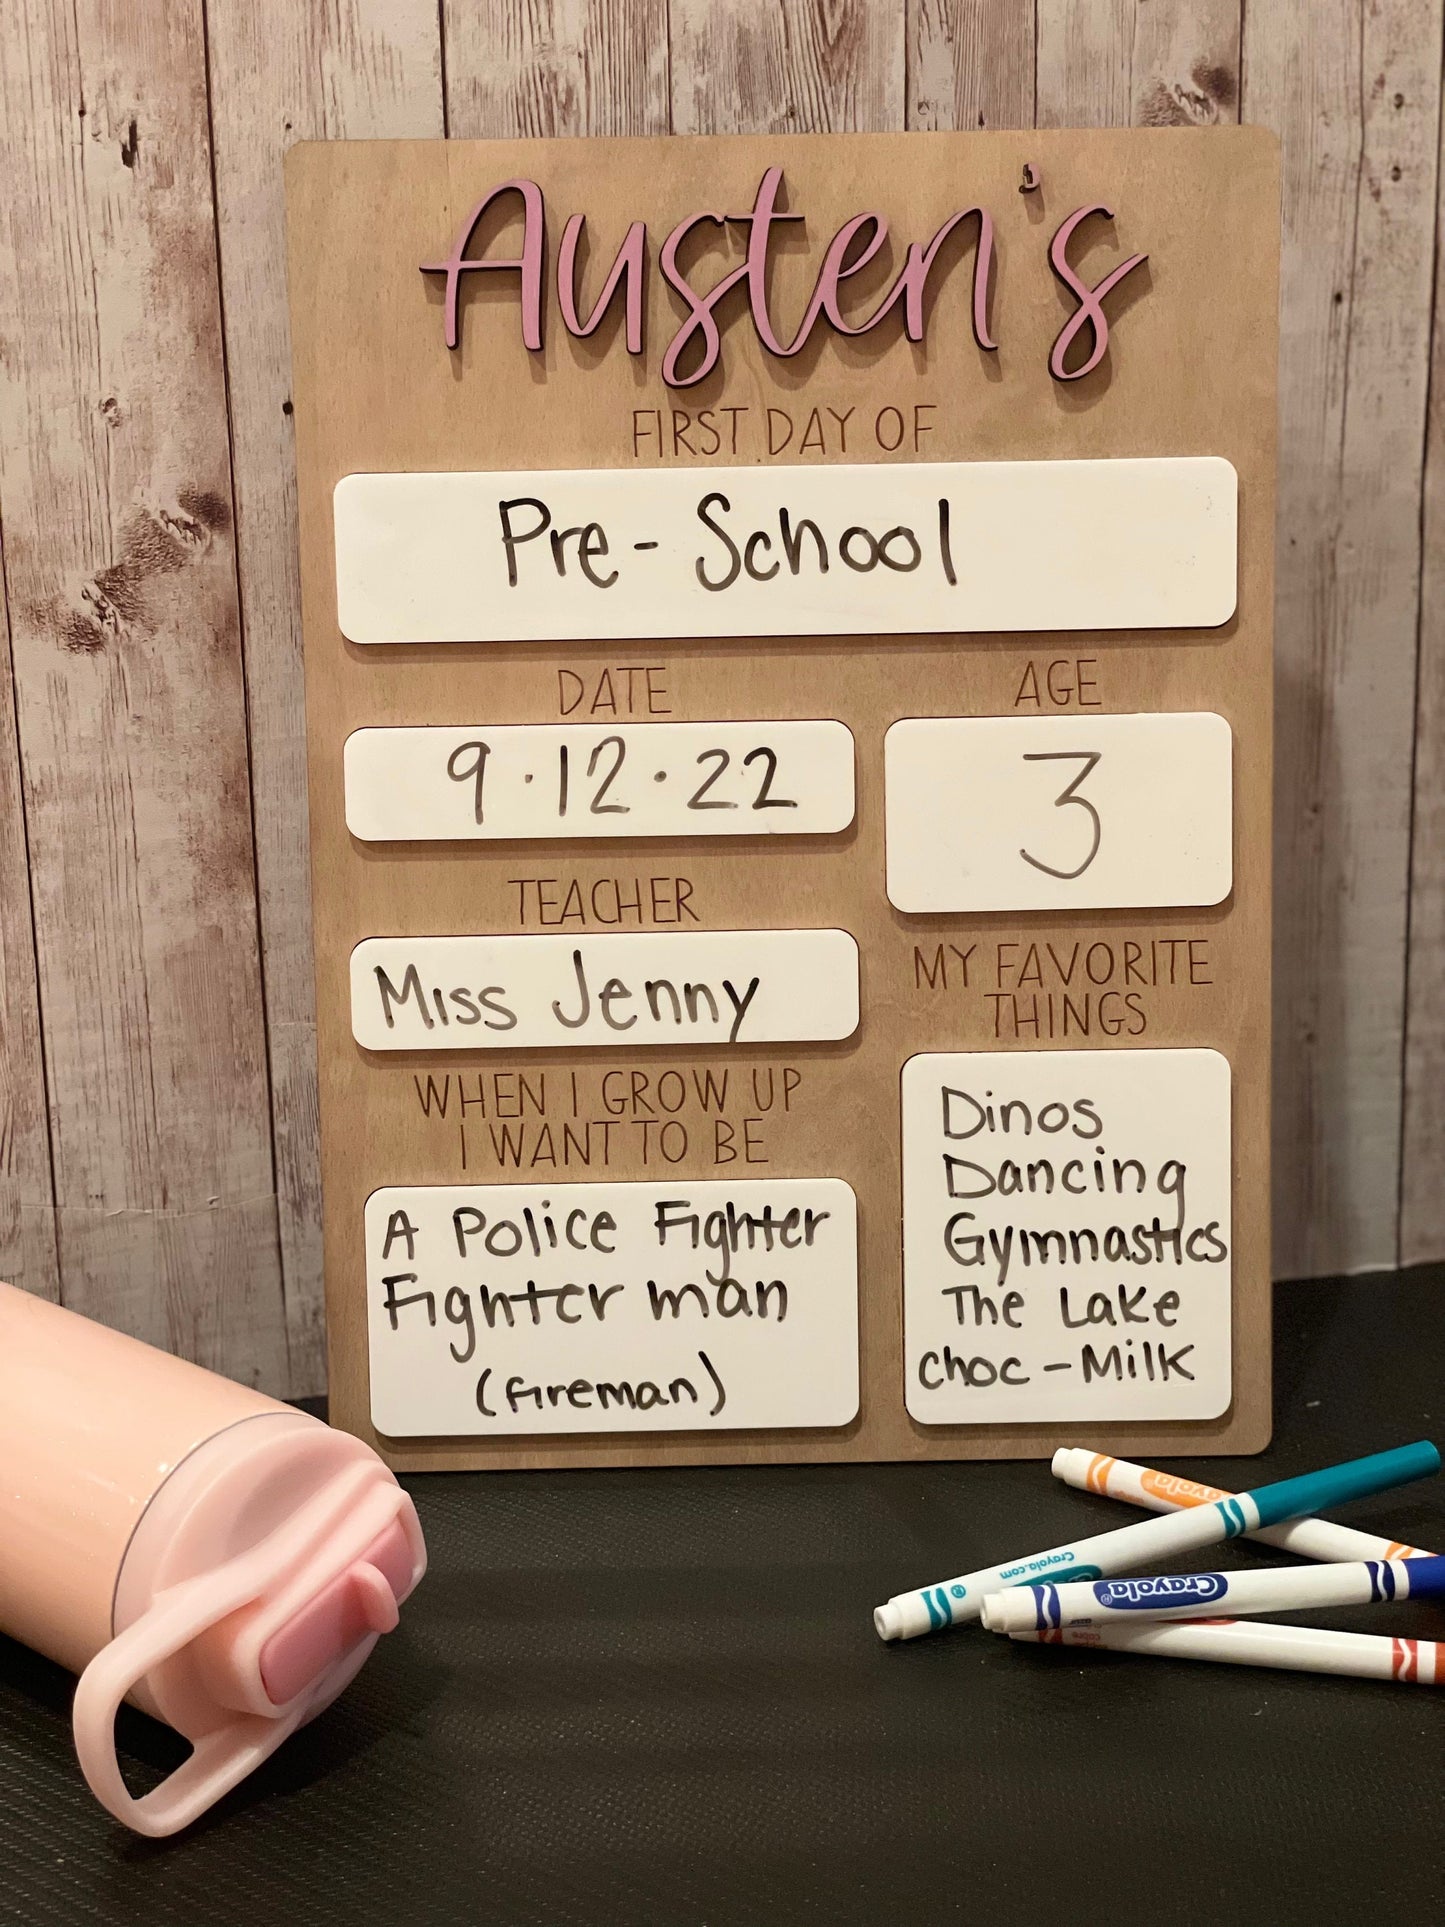 Austen's
FIRST DAY OF
Pre-School
DATE
9.12.22
AGE
3
TEACHER
Miss Jenny
MY FAVORITE
THINGS
Dinos
Dancing
Gymnastics
The Lake
choc-Milk
WHEN I GROW UP
I WANT TO BE
A Police Fighter
Fighter man
(fireman)
Crayola
Crayola.com
Crayola